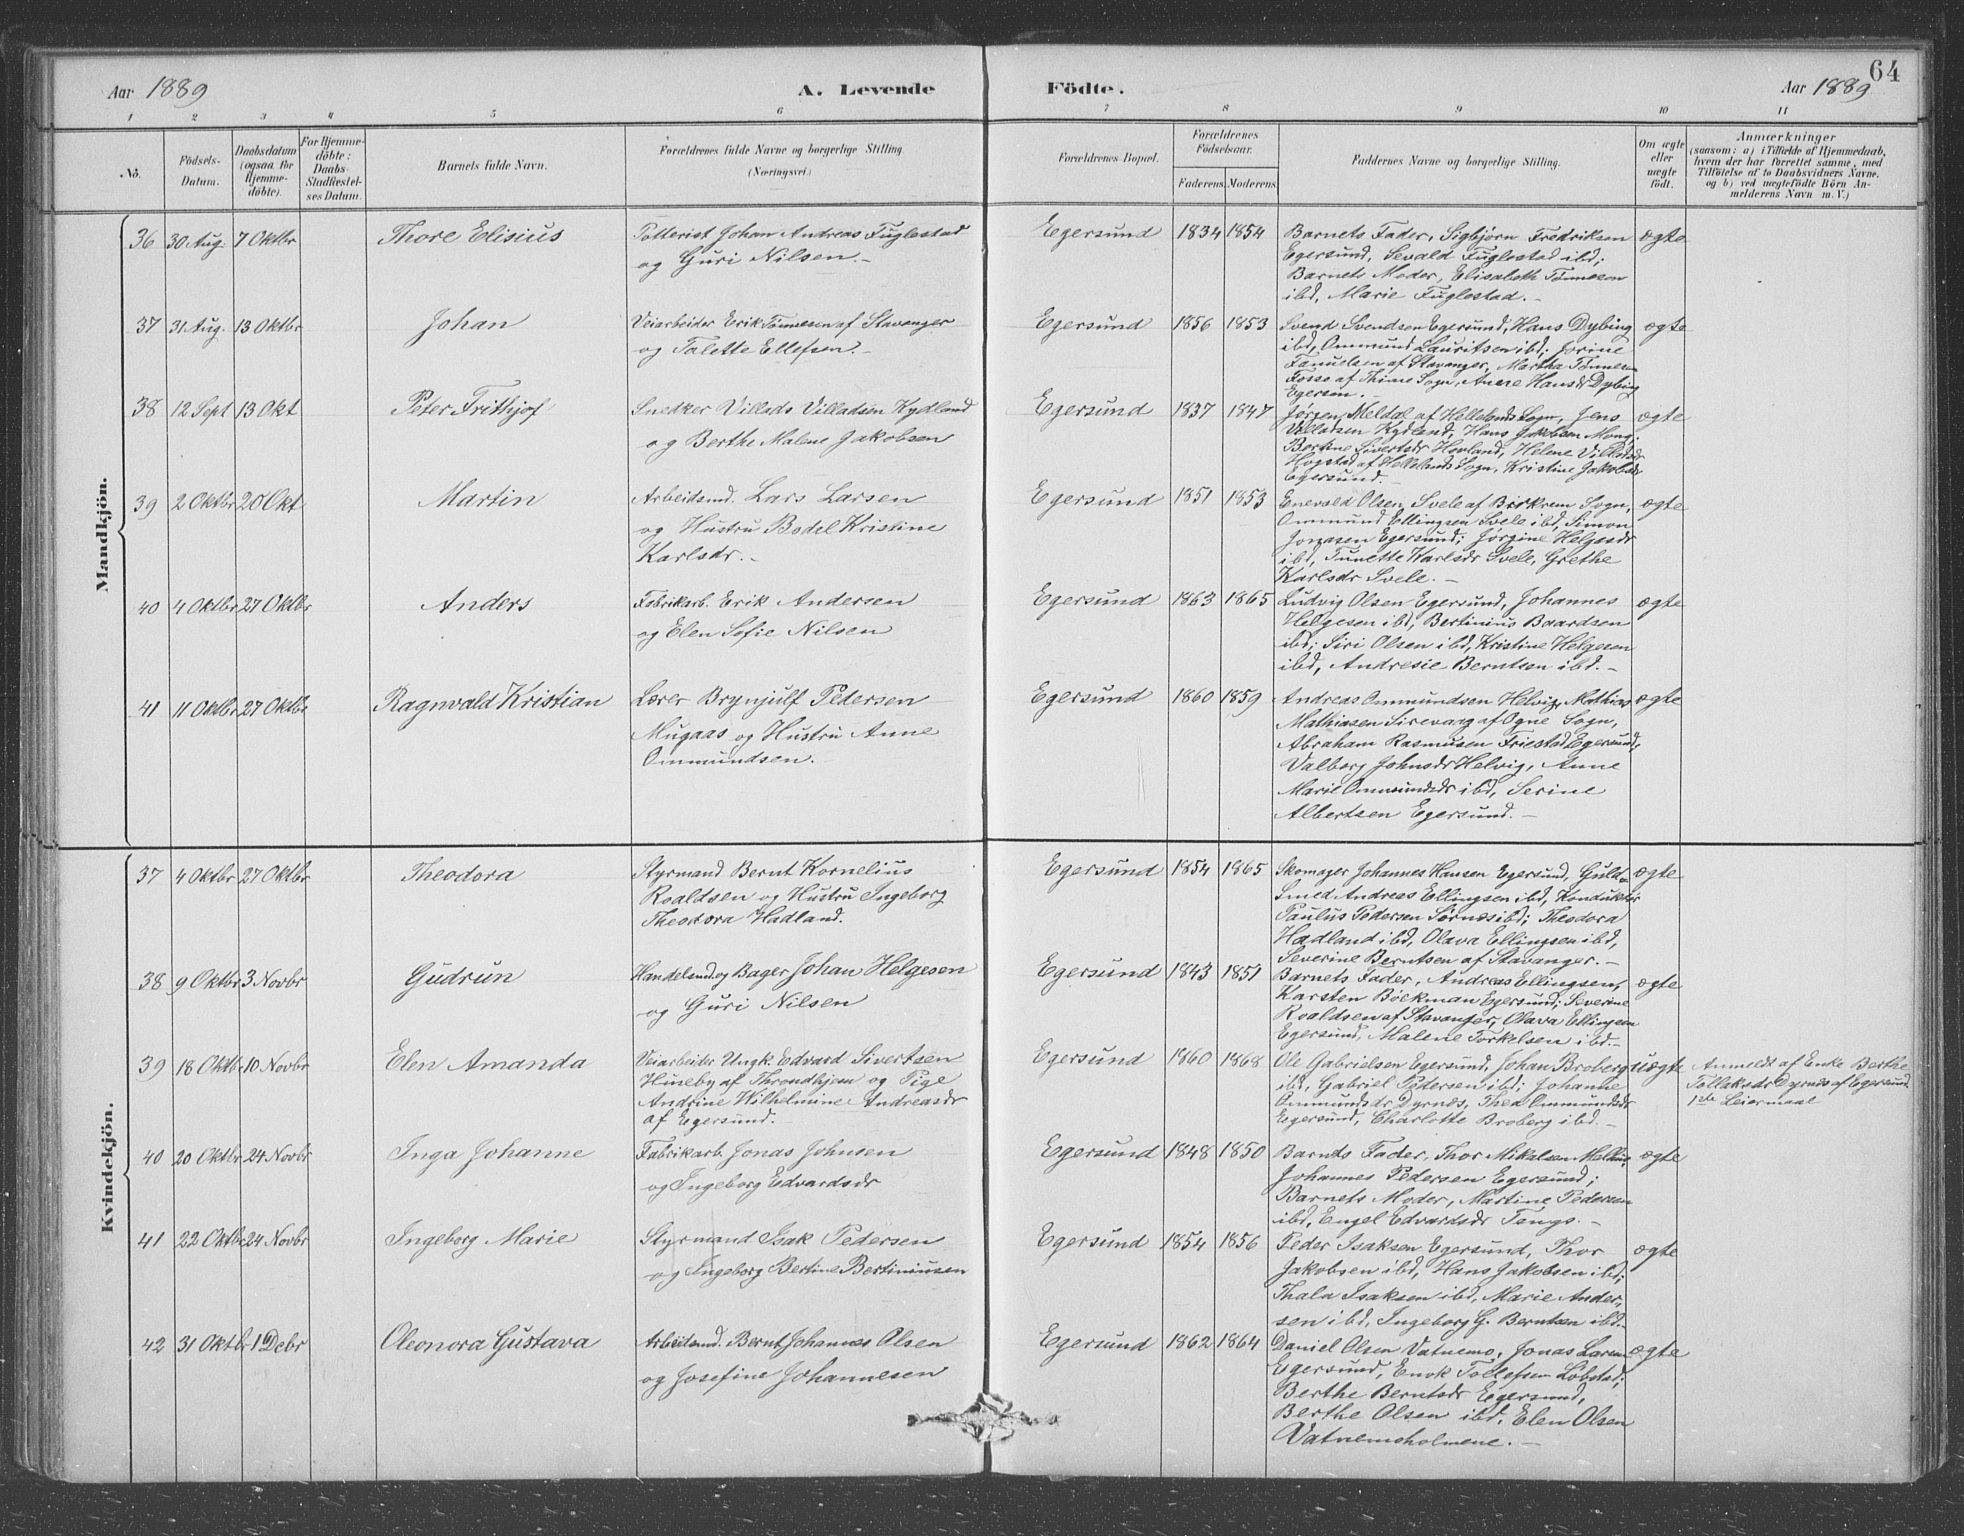 64
Aar 1889
A. Levende
Födte.
Aar 1889
1 2 3 4 5 6 7 8 9 10 11
No.
Födsels-
Datum.
Daabsdatum
(ogsaa for
Hjemme-
döbte).
For Hjemme-
döbte:
Daabs-
Stadfæstel-
ses Datum.
Barnets fulde Navn.
Forældrenes fulde Navne og borgerlige Stilling
(Næringsvei.)
Forældrenes Bopæl.
Forældrenes
Födselsaar.
Faderens. Moderens.
Faddernes Navne og borgerlige Stilling.
Om ægte
eller
uægte
födt.
Anmærkninger
(saasom: a) i Tilfælde af Hjemmedaab,
hvem der har forrettet samme, med
Tilföielse af to Daabsvidners Navne,
og b) ved uægtefödte Börn An-
melderens Navn m. V.)
Mandkjön.
36 30 Aug. 7 Oktbr Thore Elisius
Potterist Johan Andreas Fuglestad
og Guri Nilsen.-
Egersund 1834 1854
Barnets Fader, Sigbjørn Fredriksen
Egersund, Sevald Fuglestad ibd;
Barnets Moder, Elisabeth Tønnesen
ibd, Marie Fuglestad.-
ægte
37 31 Aug. 13 Oktbr Johan
Veiarbeider Erik Tønnesen af Stavanger
og Talette Ellefsen.-
Egersund 1856 1853
Svend Svendsen Egersund, Hans Dybing
ibd, Ommund Lauritsen ibd; Jorine
Fanuelsen af Stavanger, Martha Tønnesen
Fosse af Thime Sogn, Anne Hansdr Dybing
Egersun.-
ægte
38 12 Sept 13 Okt Peter Frithjof
Snedker Villads Villadsen Kydland
og Berthe Malene Jakobsen
Egersund 1837 1847
Jørgen Meldal af Hellelands Sogn, Jens
Villadsen Kydland, Hans Jakobsen Mong;
Bertine Sivertsdr Hovland, Helene Villadsdr
Hogstad af Hellelands Sogn, Kristine Jakobsdr
Egersund.-
ægte
39 2 Oktbr 20 Okt Martin
Arbeidsmd. Lars Larsen
og Hustru Bodel Kristine
Karlsdr.-
Egersund 1851 1853
Enevald Olsen Svele af Birkrem Sogn,
Ommund Ellingsen Svele ibd, Simon
Jonasen Egersund; Jørgine Helgesdr
ibd, Tunette Karlsdr Svele, Grethe
Karlsdr Svele.-
ægte
40 4 Oktbr 27 Oktbr Anders
Fabrikarb. Erik Andersen
og Elen Sofie Nilsen
Egersund 1863 1865
Ludvig Olsen Egersund, Johannes
Helgesen ibd, Bertinius Baardsen
ibd; Siri Olsen ibd, Kristine Helgesen
ibd, Andresie Berntsen ibd.-
ægte
41 11 Oktbr 27 Oktbr Ragnvald Kristian
Lærer Brynjulf Pedersen
Mugaas og Hustru Anne
Ommundsen.
Egersund 1860 1859
Andreas Ommundsen Helvig, Mathias
Mathiasen Sirevaag af Ogne Sogn,
Abraham Rasmusen Friestad Egersund;
Valborg Johnsdr Helvig, Anne
Marie Ommundsdr ibd, Serine
Albertsen Egersund.-
ægte
Kvindekjön.
37 4 Oktbr 27 Oktbr Theodora
Styrmand Bernt Kornelius
Roaldsen og Hustru Ingeborg
Theodora Hadland.
Egersund 1854 1865
Skomager Johannes Hansen Egersund, Guld-
smed Andreas Ellingsen ibd, Konduktør
Paulus Pedersen Sørnæs ibd; Theodora
Hadland ibd, Olava Ellingsen ibd,
Severine Berntsen af Stavanger.-
ægte
38 9 Oktbr 3 Novbr Gudrun
Handelsmd. og Bager Johan Helgesen
og Guri Nilsen
Egersund 1843 1851
Barnets Fader, Andreas Ellingsen,
Karsten Bøckman Egersund; Severine
Roaldsen af Stavanger, Olava Ellingsen
Egersund, Malene Torkelsen ibd.-
ægte
39 18 Oktbr 10 Novbr Elen Amanda
Veiarbeider Ungk. Edvard Sivertsen
Hineby af Throndhjem og Pige
Andrine Wilhelmine Andreasdr
af Egersund.-
Egersund 1860 1868
Ole Gabrielsen Egersund, Johan Broberg
ibd, Gabriel Pedersen ibd; Johanne
Ommundsdr Dyrnæs, Thea Ommundsdr
Egersund, Charlotte Broberg ibd.-
uægte
Anmeldt af Enke Berthe
Tollaksdr Dyrnæs af Egersund.
1ste Leiermaal
40 20 Oktbr 24 Novbr Inga Johanne
Fabrikarb. Jonas Johnsen
og Ingeborg Edvardsdr
Egersund 1848 1850
Barnets Fader, Thor Mikalsen
Johannes Pedersen Egersund;
Barnets Moder, Martine Pedersen
ibd, Engel Edvardsdr Tengs.-
ægte
41 22 Oktbr 24 Novbr Ingeborg Marie
Styrmand Isak Pedersen
og Ingeborg Bertine Bertiniusen
Egersund 1854 1856
Peder Isaksen Egersund, Thor
Jakobsen ibd, Hans Jakobsen ibd;
Thala Isaksen ibd, Marie Ander-
sen ibd, Ingeborg G. Berntsen ibd.
ægte
42 31 Oktbr 1 Debr Oleonora Gustava
Arbeidsmd. Bernt Johannes Olsen
og Josefine Johannesen
Egersund 1862 1864
Daniel Olsen Vatnemo, Jonas Larsen
Egersund, Enok Tollefsen Løbstad;
Berthe Berntsdr Egersund,
Berthe Olsen ibd, Elen Olsen
Vatnemoholmene.-
ægte